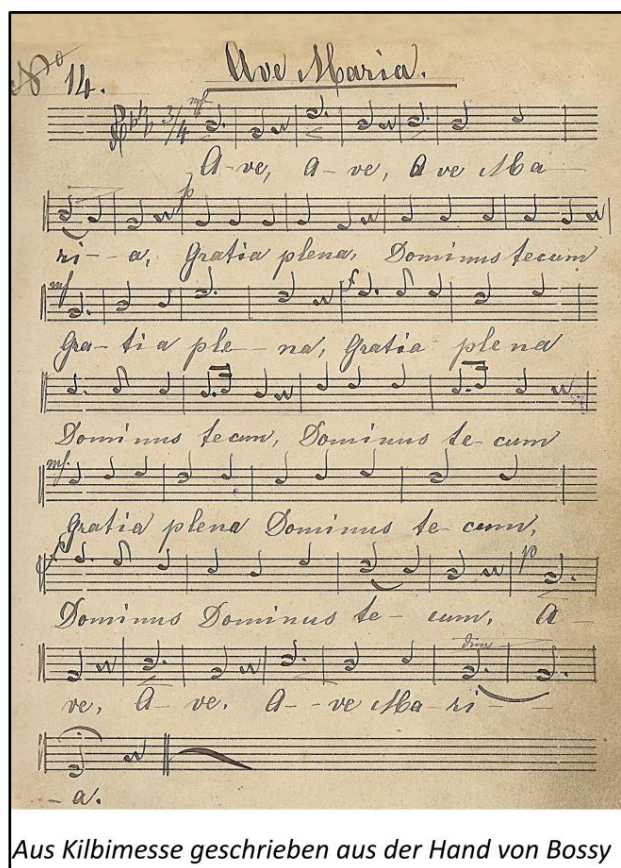 No 14. Ave Maria.
mf
3/4
A-ve, A-ve, Ave Ma-
p
ri--a, Gratia plena, Dominus tecum
mf f
Gra-tia ple-na, Gratia plena
Dominus tecum, Dominus te-cum
mf.
Gratia plena Dominus te-cum,
f p
Dominus Dominus te-cum, A-
dim
ve, A-ve, A--ve Ma-ri--
-a.
Aus Kilbimesse geschrieben aus der Hand von Bossy